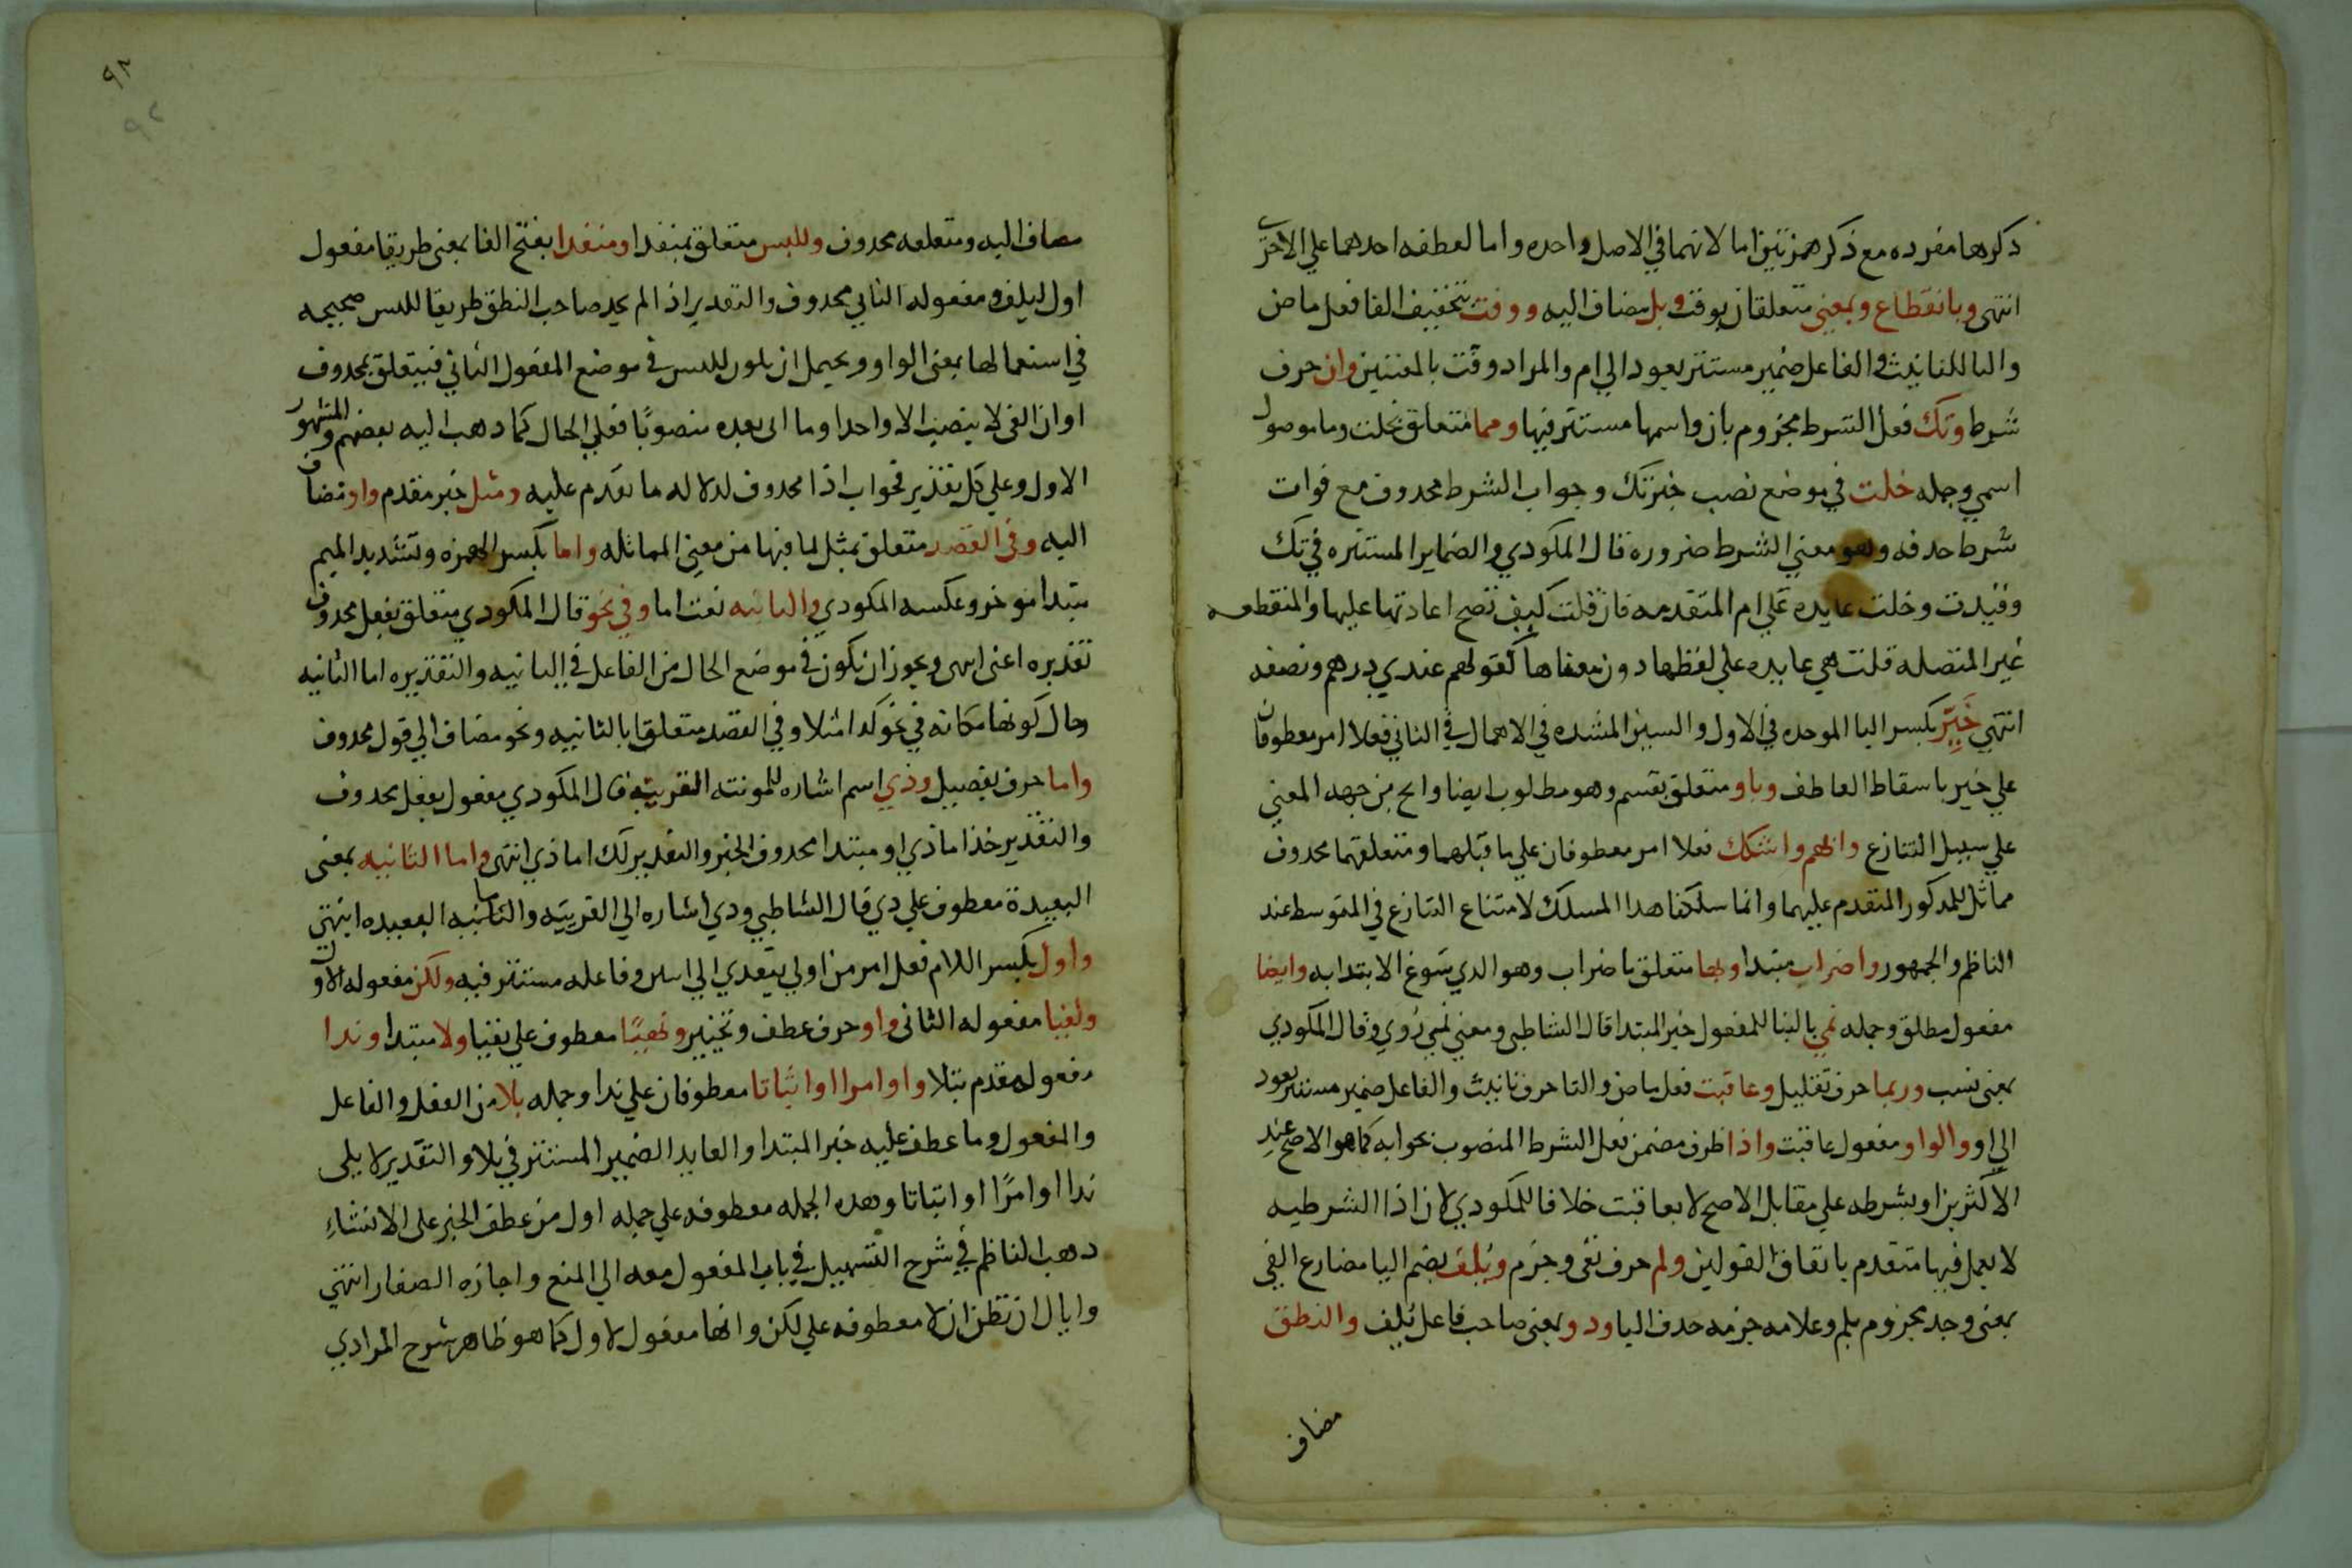 ذكرها مفرده مع ذكر همزتين اما لانهما في الاصل واحده واما لعطفه احدهما علي الاخري
انتهي وبانقطاع وبمعني متعلقان بوفت وبل مضاف اليه ووفت بتخفيف الفا فعل ماض
والتا للتانيث والفاعل ضمير مستتر يعود الي ام والمراد وفت بالمعنيين وان حرف
شرط وتك فعل الشرط مجزوم بان واسمها مستتر فيها ومما متعلق بخلت وما موصول
اسمي وجمله خلت في موضع نصب خبر تك وجواب الشرط محدوف مع فوات
شرط حدفه وهو معني الشرط ضروره قال المكودي والضماير المستتره في تك
وقيدت وخلت عايده علي ام المتقدمه فان قلت كيف تصح اعادتها عليها والمنقطعه
غير المتصله قلت هي عايده علي لفظها دون معناها كقولهم عندي درهم ونصفه
انتهي خير بكسر اليا الموحده في الاول والسين المشده في الاهمال في الثاني فعلا امر معطوفان
علي خير باسقاط العاطف وباو متعلق بقسم وهو مطلوب ايضا وابح من جهه المعني
علي سبيل التنازع وابهم واشكك فعلا امر معطوفان علي ما قبلهما ومتعلقهما محدوف
مماثل للمدكور المتقدم عليهما وانما سلكنا هدا المسلك لامتناع التنازع في المتوسط عند
الناظم والجمهور واضراب مبتدا وبها متعلق باضراب وهو الدي سوغ الابتدا به وايضا
مفعول مطلق وجمله نمي بالبنا للمفعول خبر المبتدا قال الشاطبي ومعني نمي روي وقال المكودي
بمعني نسب وربما حرف تقليل وعاقبت فعل ماض والتا حرف تانيث والفاعل ضمير مستتر يعود
الي او والواو مفعول عاقبت واذا ظرف مضمن فعل الشرط المنصوب بجوابه كما هو الاصح عند
الاكثرين او بشرطه علي مقابل الاصح لا بعاقبت خلافا للمكودي لان اذا الشرطيه
لا يعمل فيها متقدم باتفاق القولين ولم حرف نفي وجزم ويلف بضم اليا مضارع الفي
بمعني وجد مجزوم بلم وعلامه جزمه حدف اليا ودو بمعني صاحب فاعل يلف والنطق
مضاف
٩٢
٩٢
مضاف اليه ومتعلقه محدوف وللبس متعلق بمنفدا ومنفدا بفتح الفا بمعني طريقا مفعول
اول ليلف ومفعوله الثاني محدوف والتقدير اذ الم يجد صاحب النطق طريقا للبس صحيحه
في استعمالها بمعني الواو ويحمل ان يكون للبس في موضع المفعول الثاني فيتعلق بمحدوف
او ان الفي لا ينصب الا واحدا وما اتي بعده منصوبا فعلي الحال كما دهب اليه بعضهم والمشهور
الاول وعلي كل تقدير فجواب اذا محدوف لدلاله ما تقدم عليه ومثل خبر مقدم واو مضاف
اليه وفي القصد متعلق بمثل لما فيها من معني المماثله واما بكسر الهمزه وتشديد الميم
مبتدا موخر وعكسه المكودي والثانيه نعت اما وفي نحو قال المكودي متعلق بفعل محدوف
تقديره اعني انتهي ويجوز ان يكون في موضع الحال من الفاعل في الثانيه والتقديره اما الثانيه
وحال كونها مكانه في نحو كدا مثلا وفي القصد متعلقا بالثانيه ونحو مضاف الي قول محدوف
واما حرف تفصيل وذي اسم اشاره للمونثه القريبه قال المكودي مفعول بفعل محدوف
والتقدير خذ اما ذي او مبتدا محدوف الخبر والتقدير لك اما ذي انتهي واما الثانيه بمعني
البعيدة معطوف علي دي قال الشاطبي ودي اشاره الي القريبه والنائيه البعيده انتهي
واول بكسر اللام فعل امر من اولي يتعدي الي اسين وفاعله مستتر فيه ولكن مفعوله الاول
ونفيا مفعوله الثاني واو حرف عطف وتخيير ونهيا معطوف علي نفيا ولا مبتدا وندا
مفعول مقدم بتلا واو امرا او اثباتا معطوفان علي ندا وجمله تلا من الفعل والفاعل
والمفعول وما عطف عليه خبر المبتدا والعايد الضمير المستتر في تلا والتقدير لا يلي
ندا او امرًا او اثباتا وهده الجمله معطوفه علي جمله اول من عطف الخبر علي الانشاء
دهب الناظم في شرح التسهيل في باب المفعول معه الي المنع واجازه الصفار انتهي
واياك ان تظن ان لا معطوفه علي لكن وانها مفعول لاول كما هو ظاهر شرح المرادي